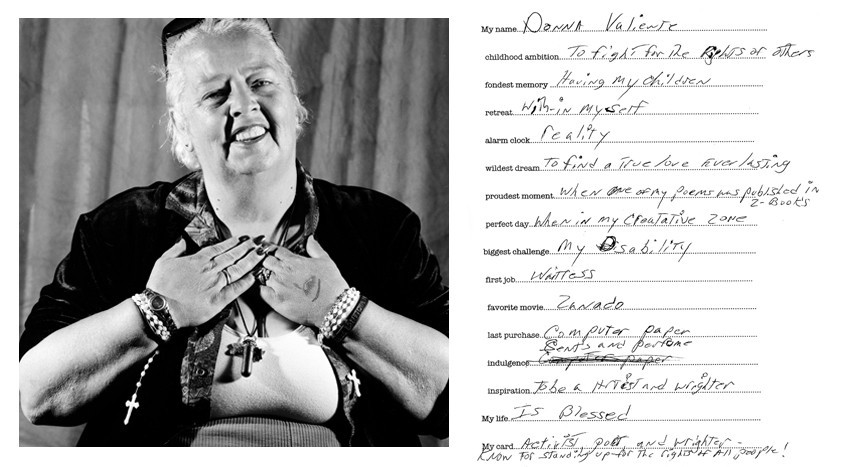 My name DONNA Valiente
childhood ambition To fight for the Rights of others
fondest memory Having My Children
retreat With-in myself
alarm clock reality
wildest dream To find a True love Everlasting
proudest moment when one of my poems was published in
2-Books
perfect day When in my Creatative zone
biggest challenge My Disability
first job Waitress
favorite movie Zanado
last purchase Computer paper
Sents and perfome
indulgence Computer paper
inspiration To be a Artist and wrighter
My life Is Blessed
My card Activist poet and wrighter -
Know For standing up for the rights of All people!